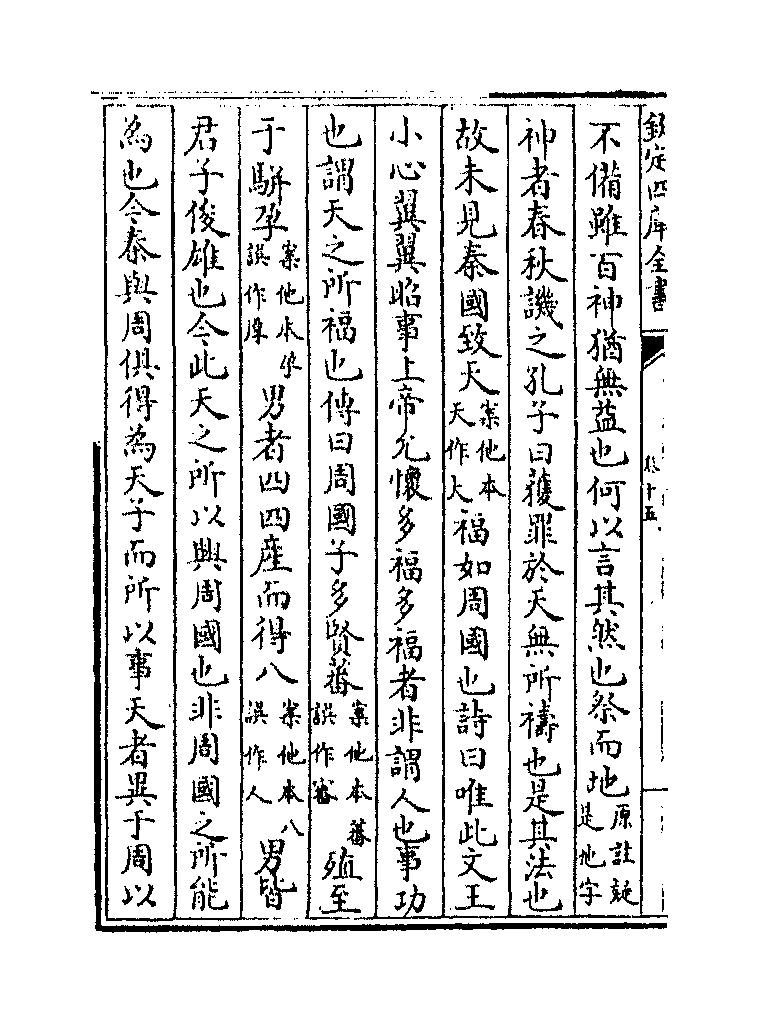 欽定四庫全書
卷十五
不備雖百神猶無益也何以言其然也祭而地原註疑是他字
神者春秋譏之孔子曰獲罪於天無所禱也是其法也
故未見秦國致天案他本天作大福如周國也詩曰唯此文王
小心翼翼昭事上帝允懷多福多福者非謂人也事功
也謂天之所福也傳曰周國子多賢蕃案他本蕃誤作殖至
于駢孕案他本孕誤作男者四四產而得八案他本八誤作人男皆
君子俊雄也今此天之所以興周國也非周國之所能
為也今秦與周俱得為天子而所以事天者異于周以